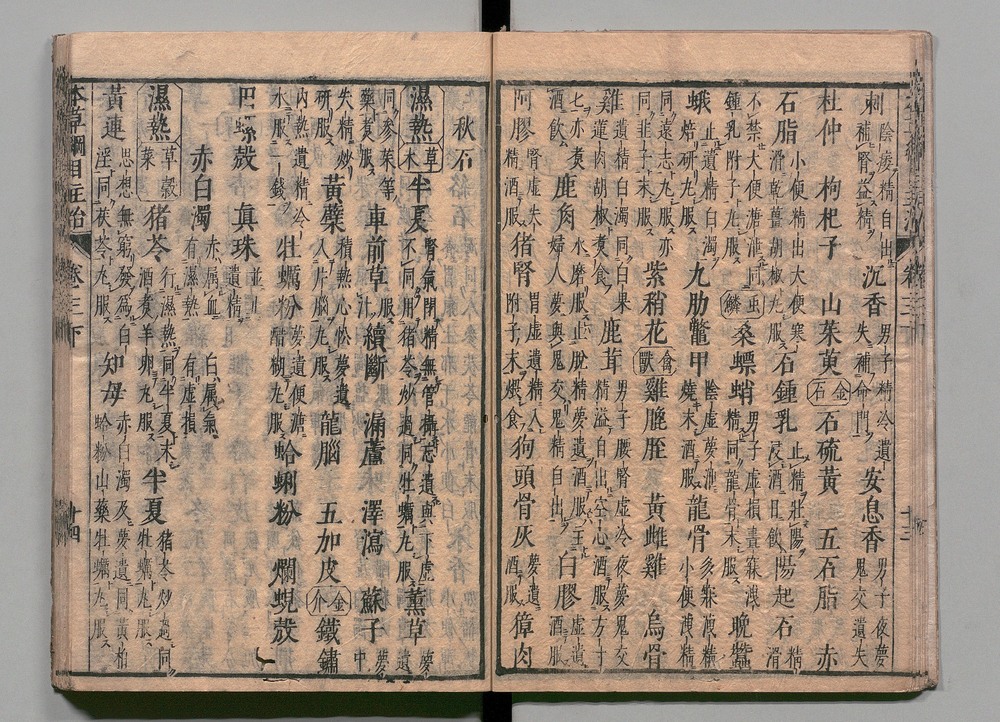 刺 陰痿精自出 補腎益精 沉香 男子精冷遺失補命門 安息香 男子夜夢鬼交遺失
杜仲 枸杞子 山茱萸 金石 石硫黃 五石脂 赤
石脂 小便精出大便寒滑乾薑胡椒丸服 石鍾乳 止精壯陽浸酒日飲 陽起石 精滑
不禁大便溏泄同
鍾乳附子丸服 蟲鱗 桑螵蛸 男子虛損晝寐洩精同龍骨末服 晚蠶
蛾 止遺精白濁焙研丸服 九肋鼈甲 陰虛夢泄燒末酒服 龍骨 多寐洩精小便洩精
同遠志丸服亦同韭子末服 紫稍花 禽獸 雞䏶胵 黃雌雞 烏骨
雞 遺精白濁同白果蓮肉胡椒煮食 鹿茸 男子腰腎虛冷夜夢鬼交精溢自出空心酒服方寸
七亦煮酒飲 鹿角 水磨服止脫精夢遺酒服主婦人夢與鬼交鬼精自出 白膠 虛遺酒服
阿膠 腎虛失精酒服 猪腎 腎虛遺精入附子末煨食 狗頭骨灰 夢遺酒服 獐肉
秋石
濕熱 草木 半夏 腎氣閉精無管攝妄遺與下虛不同用猪苓炒過同牡蠣丸服 薰草 夢遺
同參朮等藥煮服 車前草 汁服 續斷 漏蘆 澤瀉 蘇子 夢中
失精炒研服 黃蘗 積熱心忪夢遺入片腦丸服 龍腦 五加皮 金介 鐵鏽
內熱遺精冷水服一錢 牡蠣粉 夢遺便溏醋糊丸服 蛤蜊粉 爛蜆殼
田螺殼 真珠 並止遺精
赤白濁 赤屬血白屬氣有濕熱有虛損
濕熱 草穀菜 猪苓 行濕熱同半夏末酒煮羊卵丸服 半夏 猪苓炒過同牡蠣丸服
黃連 思想無窮發為白淫同茯苓丸服 知母 赤白濁及夢遺同黃柏蛤粉山藥牡蠣丸服
本草綱目主治 卷三下 十四